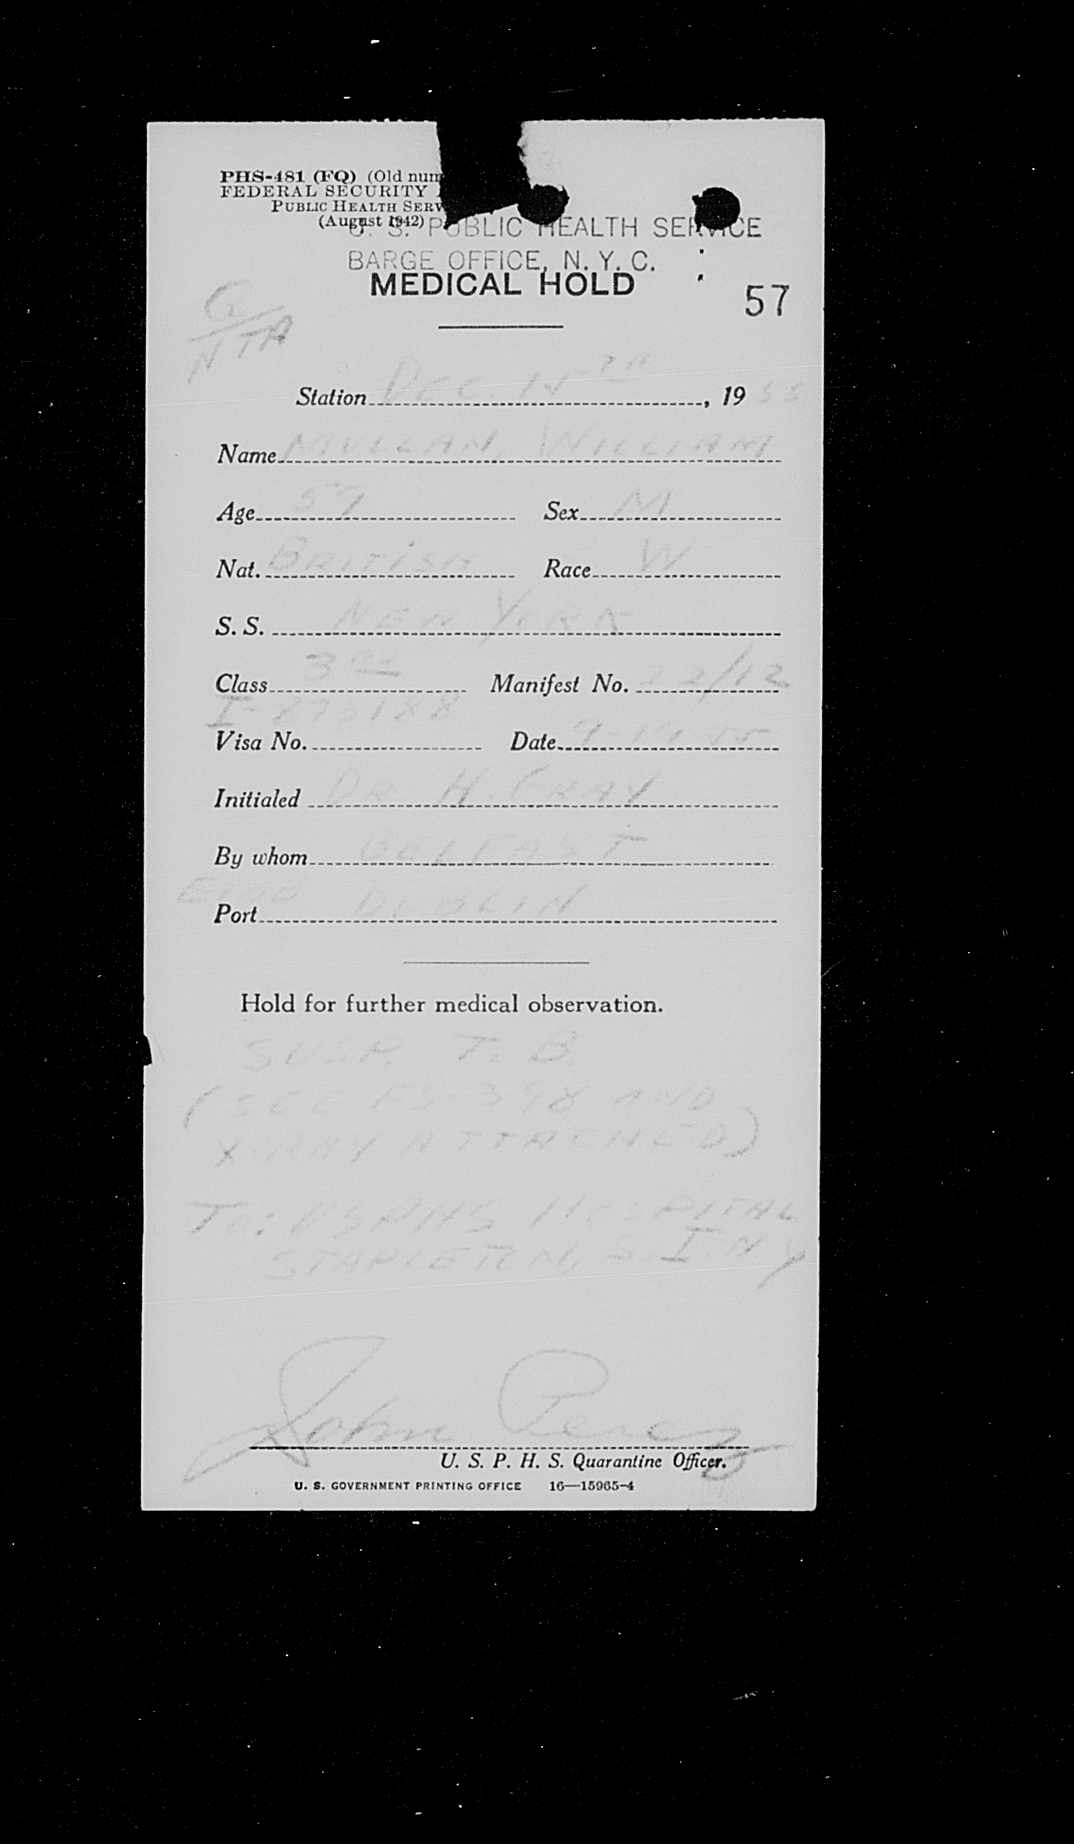 PHS-481 (FQ) (Old num
FEDERAL SECURITY
PUBLIC HEALTH SERV
(August 1942)
U. S. PUBLIC HEALTH SERVICE
BARGE OFFICE, N. Y. C.
MEDICAL HOLD
57
G
NTA
Station DEC. 15, 1955
Name MULLAN, WILLIAM
Age 57 Sex M
Nat. BRITISH Race W
S. S. NEW YORK
Class 3 Manifest No. 22/12
I-
Visa No. Date 9-19-55
Initialed DR H. CRAY
By whom BELFAST
Port DUBLIN
Hold for further medical observation.
SUSP. T. B.
(SEE FS-398 AND
X-RAY ATTACHED)
TO: USPHS HOSPITAL
STAPLETON, S. I. NY
John Perez
U. S. P. H. S. Quarantine Officer.
U. S. GOVERNMENT PRINTING OFFICE 16—15965-4